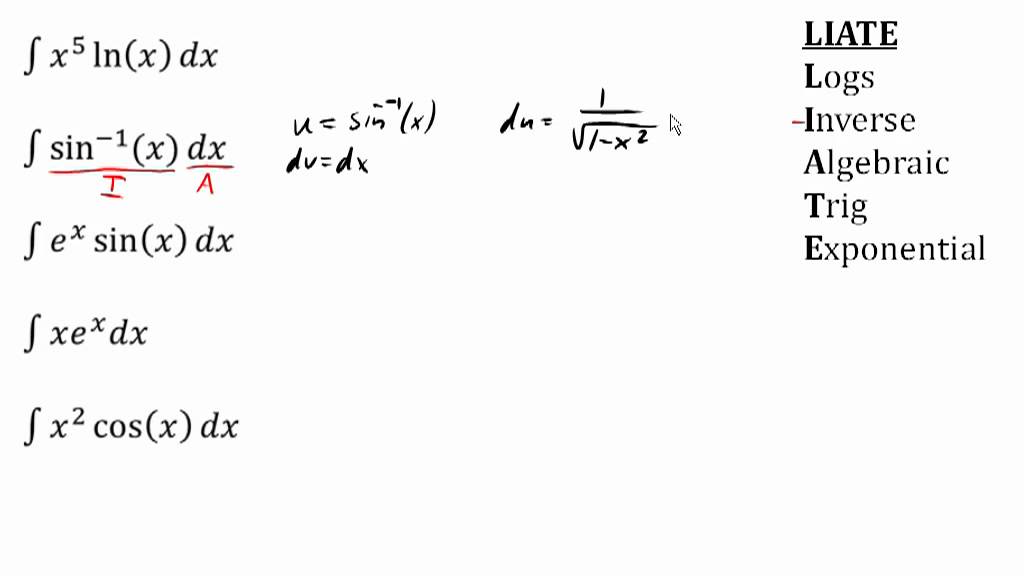 ∫ x⁵ ln(x) dx
∫ sin⁻¹(x) dx
I A
u = sin⁻¹(x) du = 1/√(1-x²)
dv = dx
∫ eˣ sin(x) dx
∫ xeˣ dx
∫ x² cos(x) dx
LIATE
Logs
Inverse
Algebraic
Trig
Exponential